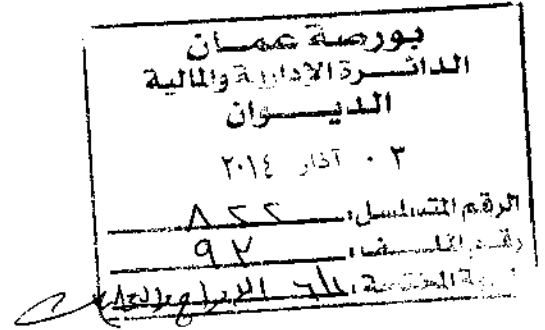 بورصة عمان
الدائرة الإدارية والمالية
الديوان
٠٣ آذار ٢٠١٤
الرقم المتسلسل: ٨٢٢
رقم الملف: ٩٧
الجهة المختصة: